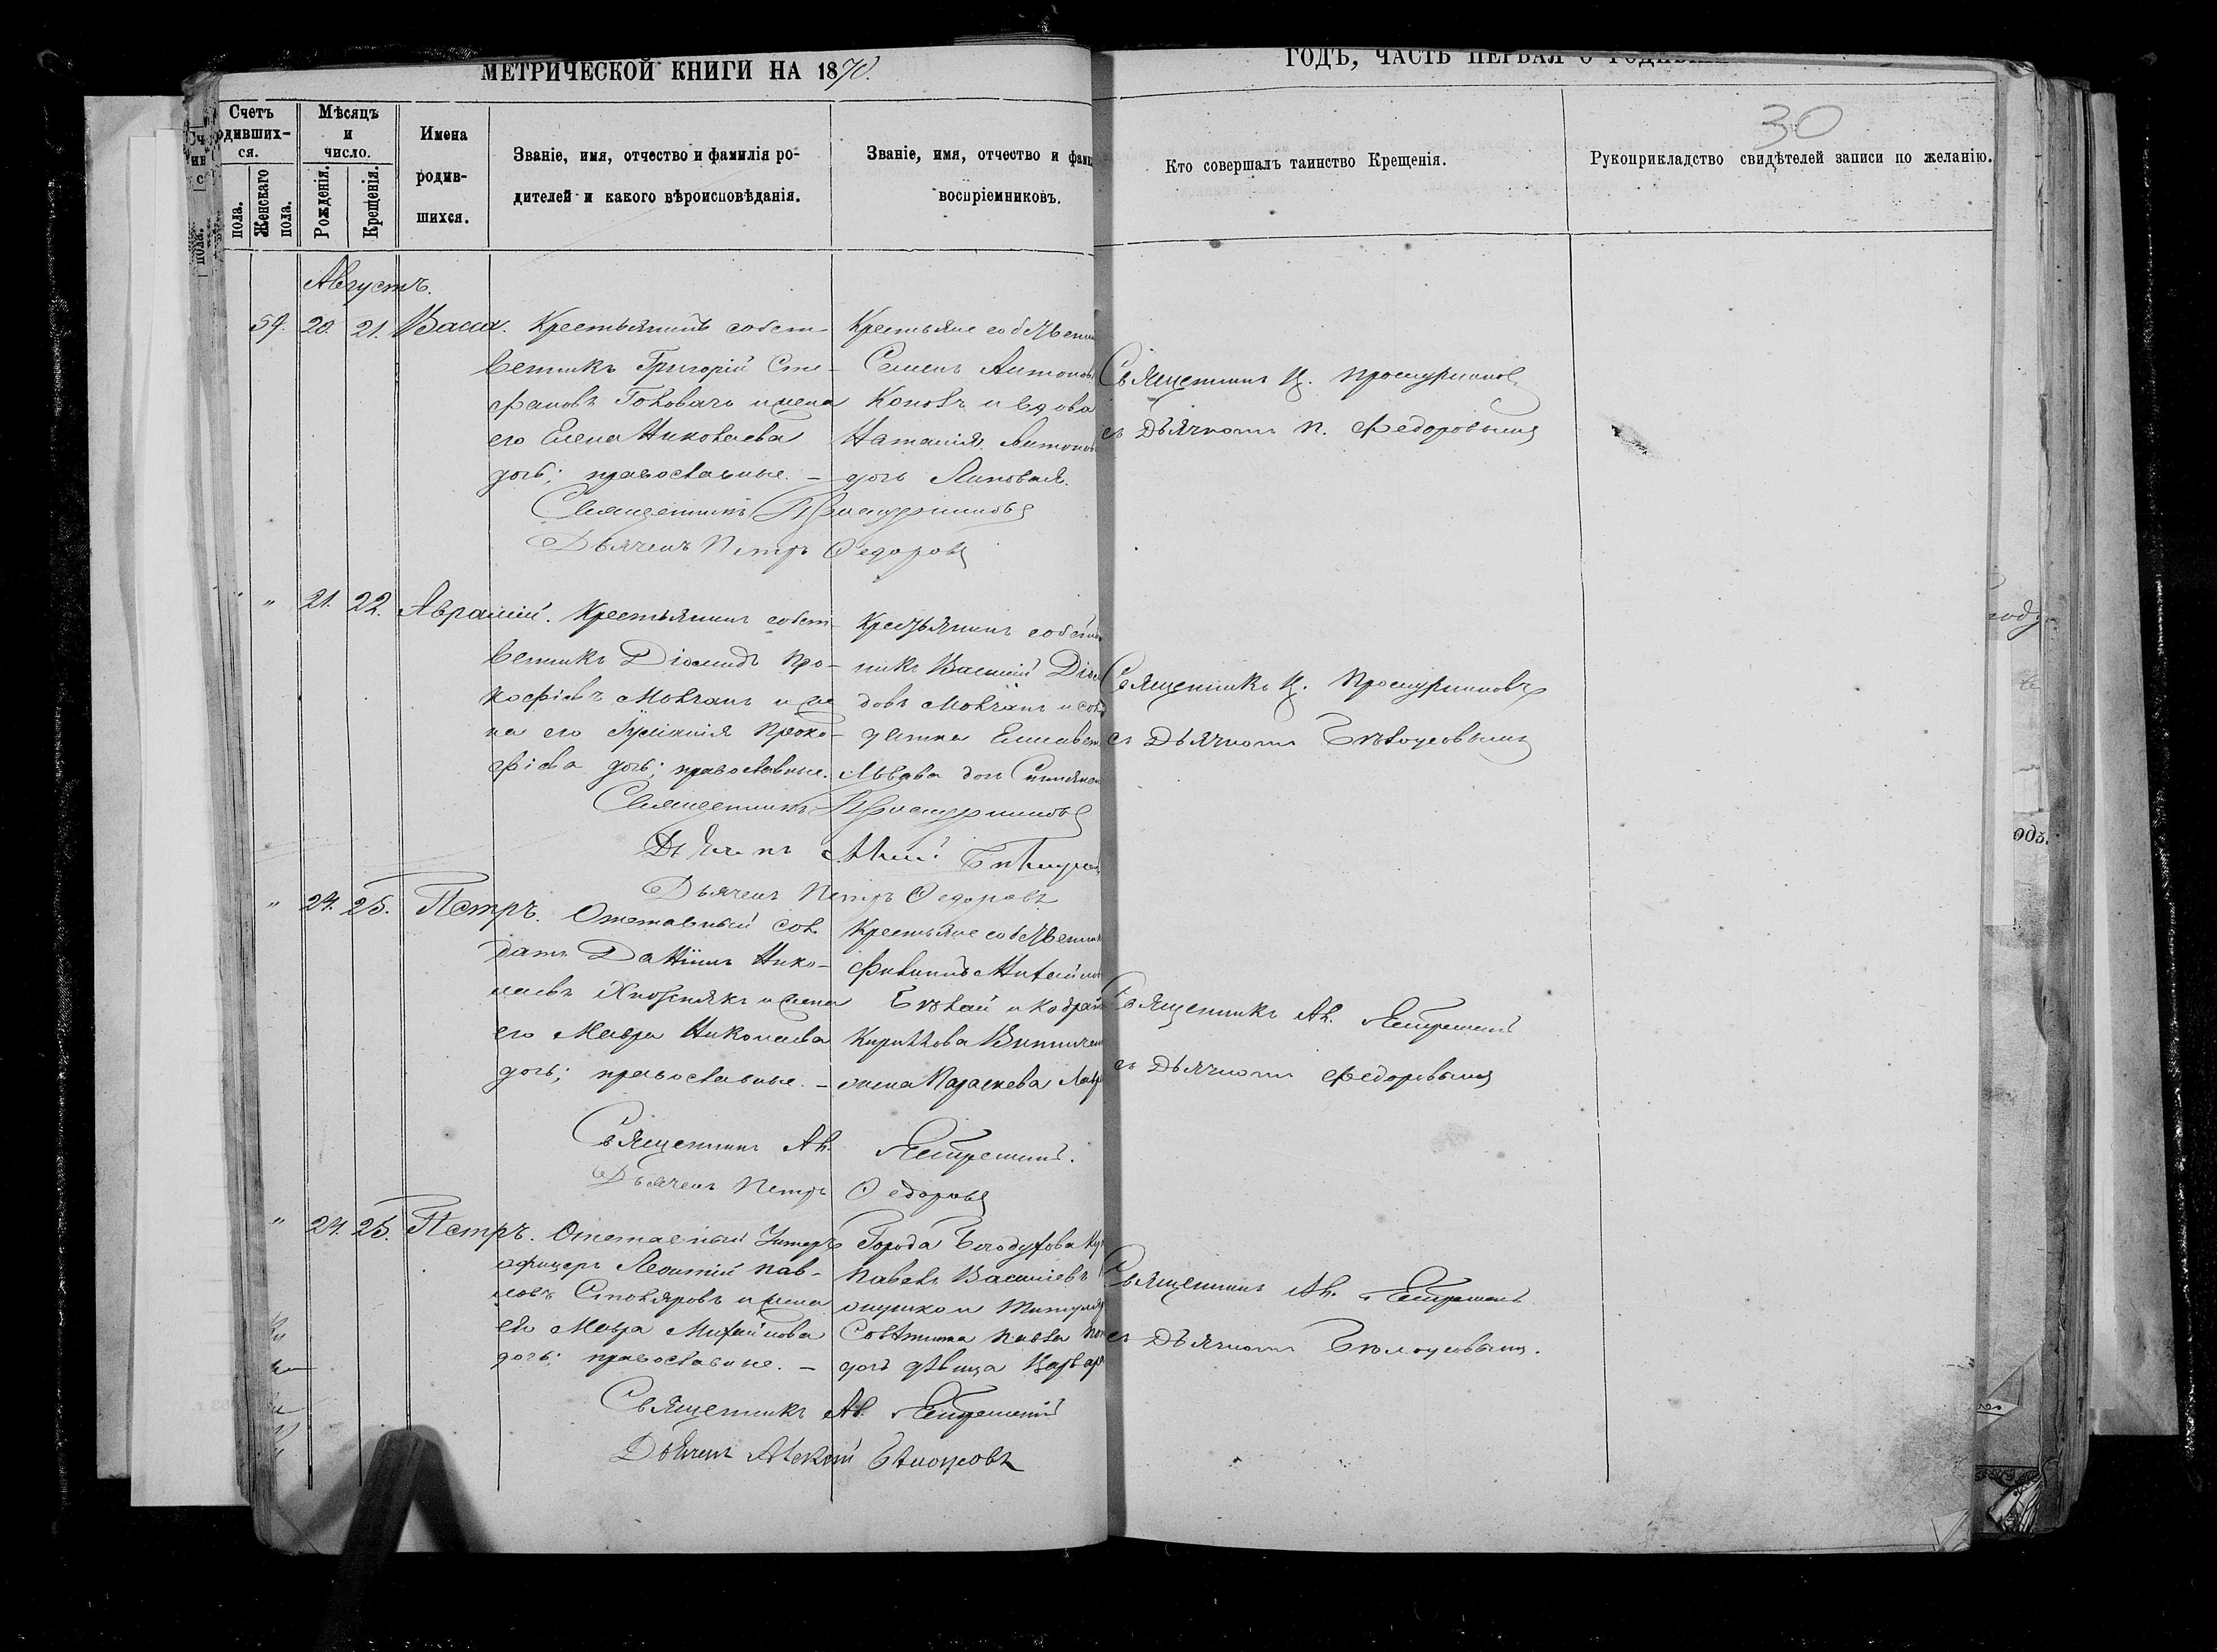 МЕТРИЧЕСКОЙ КНИГИ НА 1870.
ГОДЪ, ЧАСТЬ ПЕРВАЯ О
30
Счетъ
родивших-
ся.
пола.
Женскаго
пола.
Мѣсяцъ
и
число.
Рожденія.
Крещенія.
Имена
родив-
шихся.
Званіе, имя, отчество и фамилія ро-
дителей и какого вѣроисповѣданія.
Званіе, имя, отчество и фами
воспріемниковъ.
Кто совершалъ таинство Крещенія.
Рукоприкладство свидѣтелей записи по желанію.
Августъ.
59. 20. 21. Васса.
Крестьянинъ собст-
венникъ Григорій Сте-
фановъ Головачъ и жена
его Елена Николаева
дочь; православные. –
Крестьяне собственни
Семенъ Антоновъ
Коповъ и вдова
Наталія Антонов
дочь Липовая.
Священникъ І. Проскурниковъ
съ Дьячкомъ П. Федоровымъ
Священникъ Проскурниковъ
Дьячекъ Петръ Федоровъ
" 21. 22. Аврамій.
Крестьянинъ собст-
венникъ Діомидъ Про-
кофіевъ Молчанъ и же
на его Гликерія Проко-
фіева дочь; православные.
Крестьянинъ собствен
никъ Василій Діоми
довъ Молчанъ и сол
датка Елисавет
Львова дочь
Священникъ І. Проскурниковъ
съ Дьячкомъ Бѣлоусовымъ
Священникъ Проскурниковъ
Дьячекъ Алексій Бѣлоусовъ
Дьячекъ Петръ Федоровъ
" 24. 25. Петръ.
Отставный сол
датъ Даніилъ Нико-
лаевъ и жена
его Мавра Николаева
дочь; православные. –
Крестьяне собственни
Филиппъ Михайлов
Бѣлай и
Кириллова
жена Параскева Лавр
Священникъ Ал. Ястремскій
съ Дьячкомъ Федоровымъ
Священникъ Ал. Ястремскій.
Дьячекъ Петръ Федоровъ
" 24. 25. Петръ.
Отставный Унтеръ
офицеръ Леонтій Пав-
ловъ Столяровъ и жена
его Мавра Михайлова
дочь; православные. –
Города Богодухова Куп
Павелъ Васильевъ
и Титуля
Совѣтника Павла
дочь дѣвица Варвар
Священникъ Ал. Ястремскій
съ Дьячкомъ Бѣлоусовымъ.
Священникъ Ал. Ястремскій
Дьячекъ Алексій Бѣлоусовъ